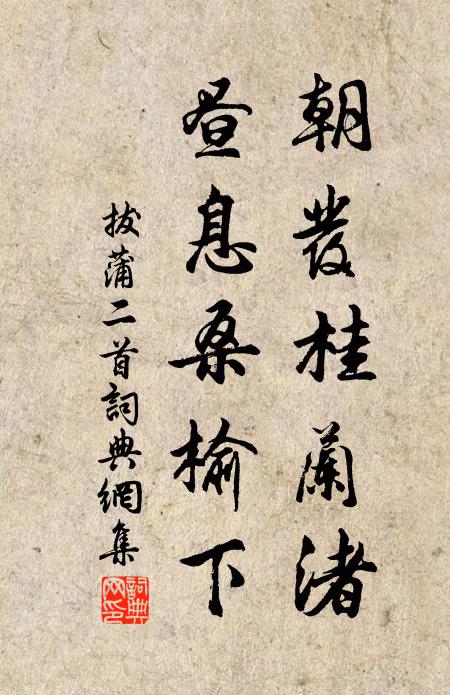 朝發桂蘭渚
晝息桑榆下
拔蒲二首詞典網集
詞典網印